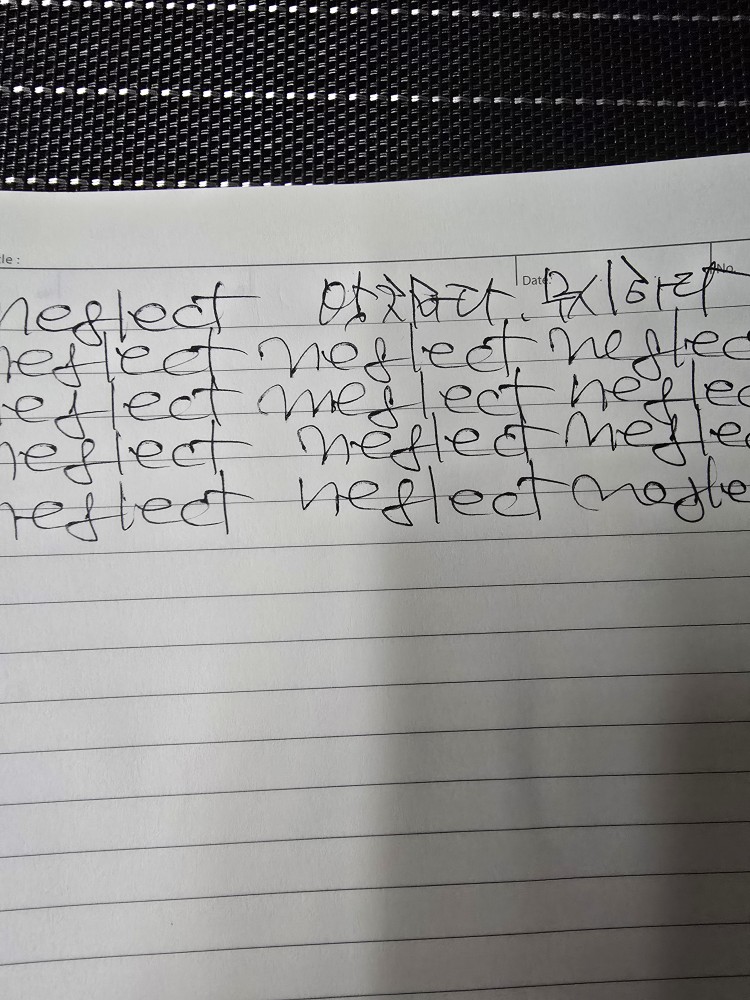 tle :
Date: No.
neglect
neglect neglect neglec
eglect neglect neglec
neglect neglect neglec
neglect neglect negle